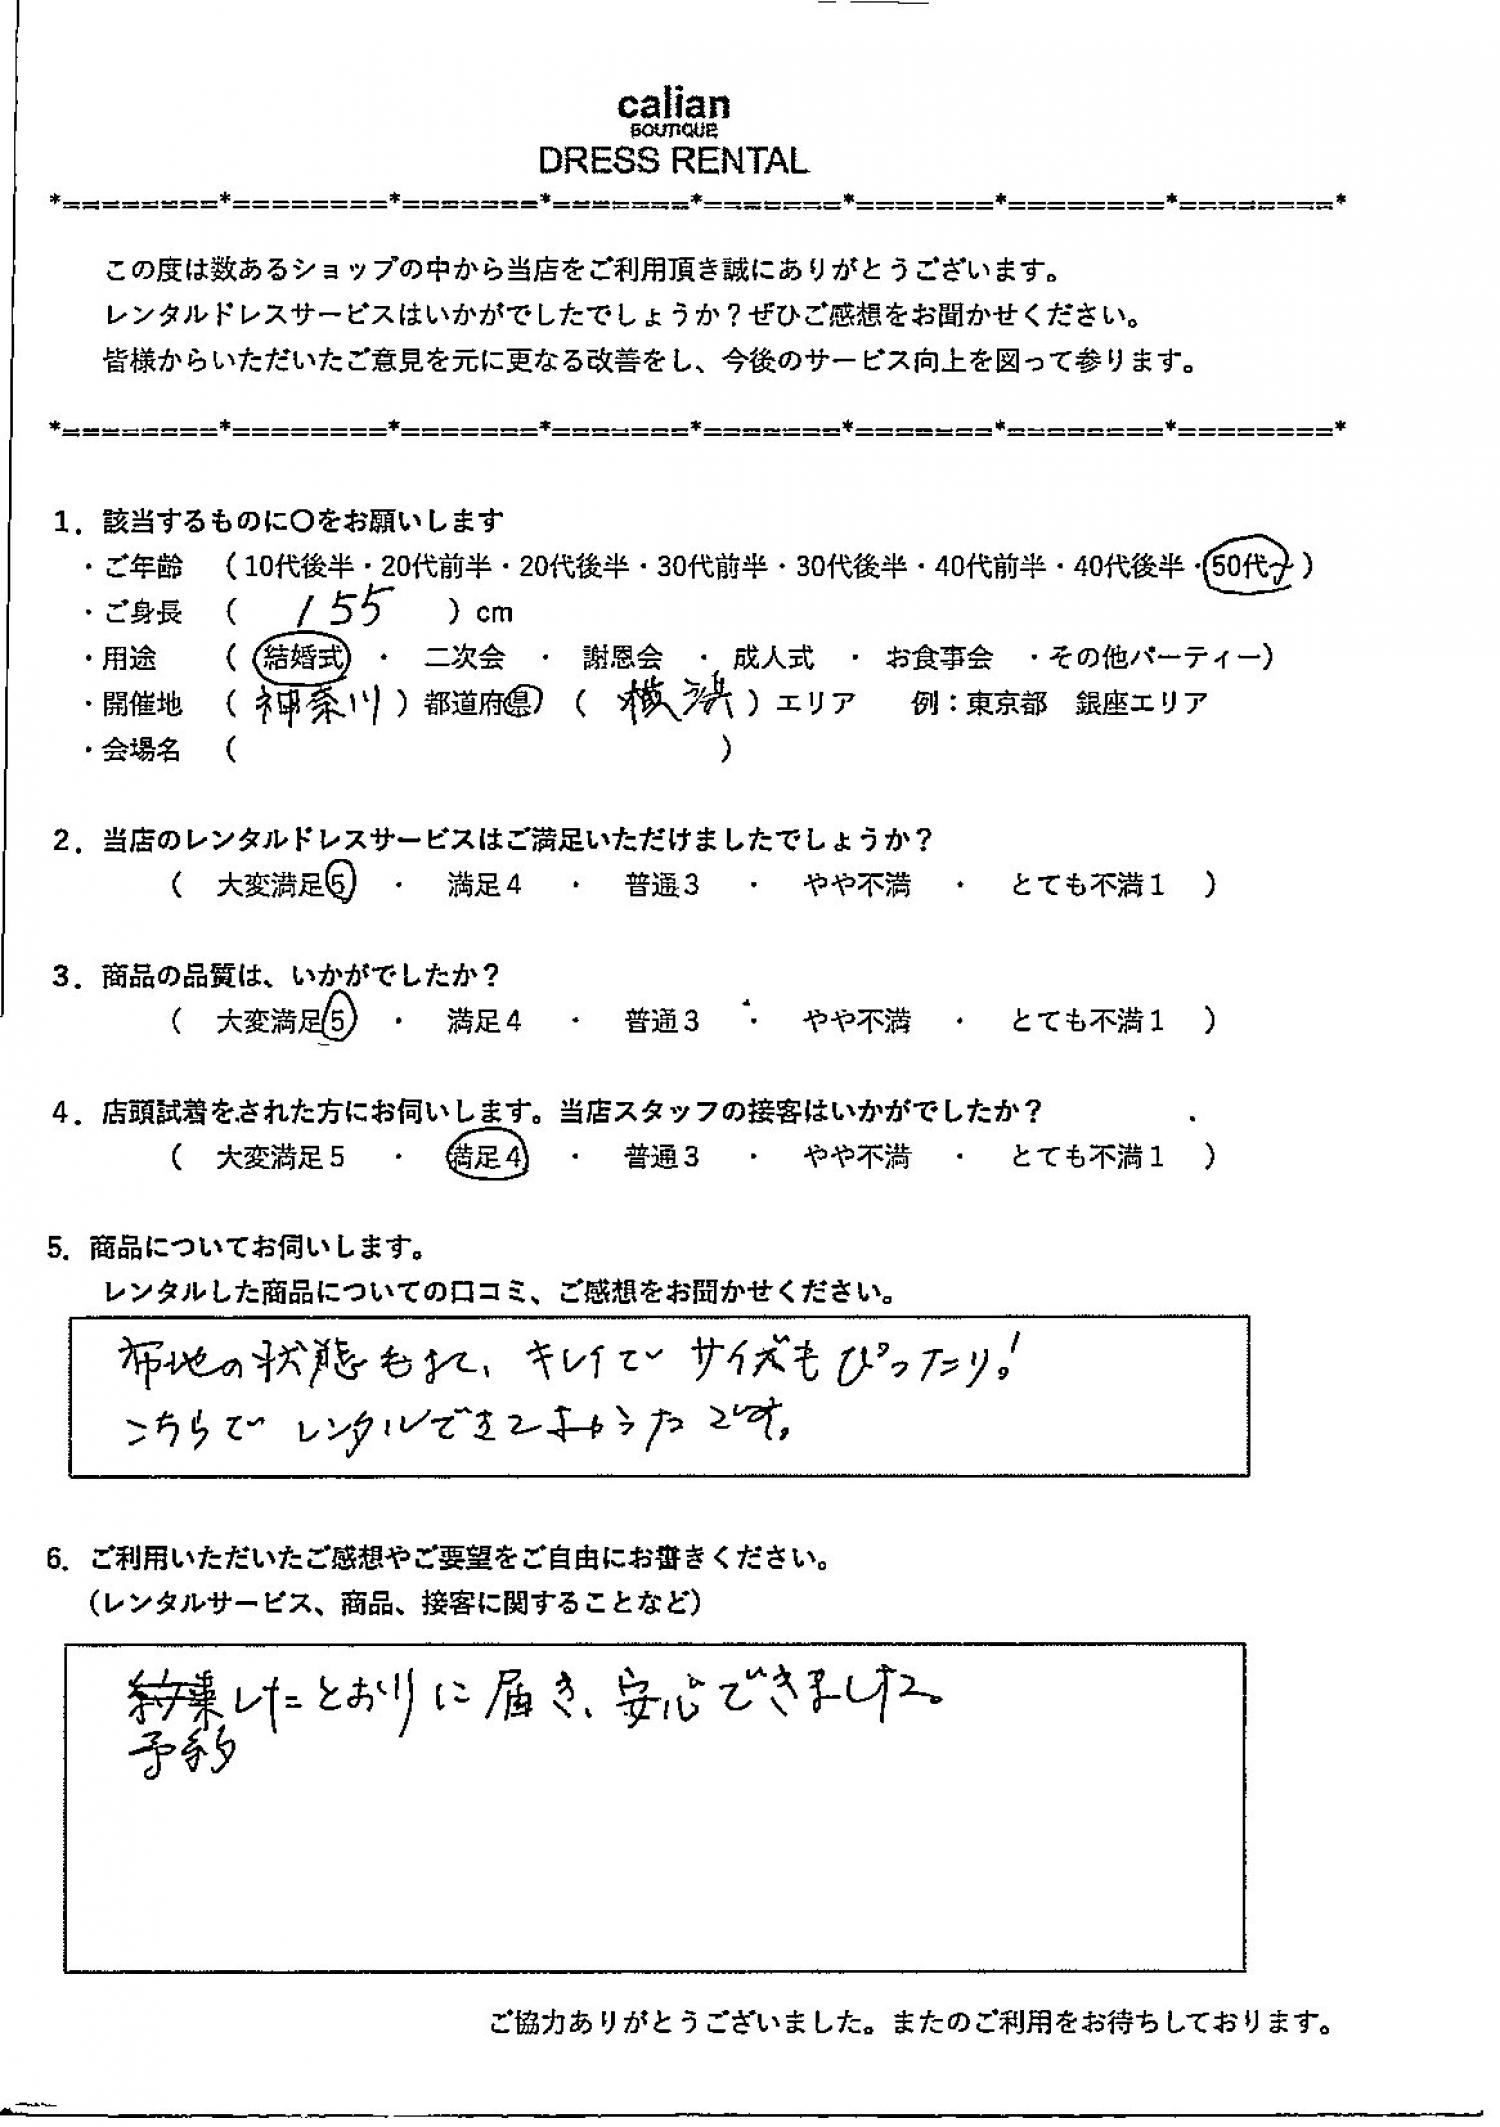 calian
BOUTIQUE
DRESS RENTAL
*========*========*=======*=======*=======*=======*========*========*
この度は数あるショップの中から当店をご利用頂き誠にありがとうございます。
レンタルドレスサービスはいかがでしたでしょうか？ぜひご感想をお聞かせください。
皆様からいただいたご意見を元に更なる改善をし、今後のサービス向上を図って参ります。
*========*========*=======*=======*=======*=======*========*========*
1．該当するものに〇をお願いします
・ご年齢 （10代後半・20代前半・20代後半・30代前半・30代後半・40代前半・40代後半・50代～）
・ご身長 （ 155 ）cm
・用途 （ 結婚式 ・ 二次会 ・ 謝恩会 ・ 成人式 ・ お食事会 ・その他パーティー）
・開催地 （ 神奈川 ）都道府県 （ 横浜 ）エリア 例：東京都 銀座エリア
・会場名 （ ）
2．当店のレンタルドレスサービスはご満足いただけましたでしょうか？
（ 大変満足5 ・ 満足4 ・ 普通3 ・ やや不満 ・ とても不満1 ）
3．商品の品質は、いかがでしたか？
（ 大変満足5 ・ 満足4 ・ 普通3 ・ やや不満 ・ とても不満1 ）
4．店頭試着をされた方にお伺いします。当店スタッフの接客はいかがでしたか？
（ 大変満足5 ・ 満足4 ・ 普通3 ・ やや不満 ・ とても不満1 ）
5．商品についてお伺いします。
レンタルした商品についての口コミ、ご感想をお聞かせください。
布地の状態も キレイで サイズもぴったり!
こちらで レンタルできてよかったです。
6．ご利用いただいたご感想やご要望をご自由にお書きください。
（レンタルサービス、商品、接客に関することなど）
約束したとおりに届き、安心できました。
予約
ご協力ありがとうございました。またのご利用をお待ちしております。